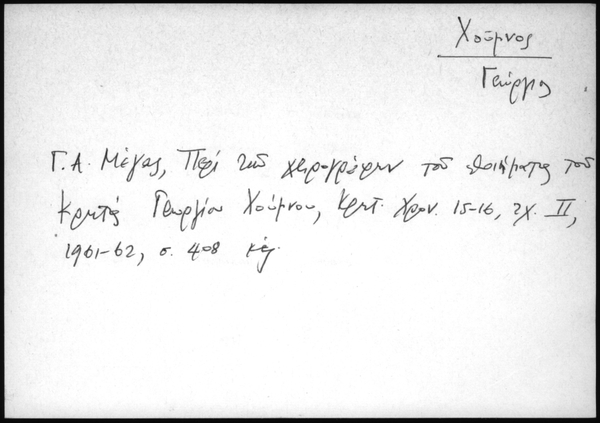 Χοῦμνος
Γεώργιος
Γ. Α. Μέγας, Περὶ τῶν χειρογράφων τοῦ ποιήματος τοῦ
Κρητὸς Γεωργίου Χούμνου, Κρητ. Χρον. 15-16, τχ. II,
1961-62, σ. 408 κἑξ.